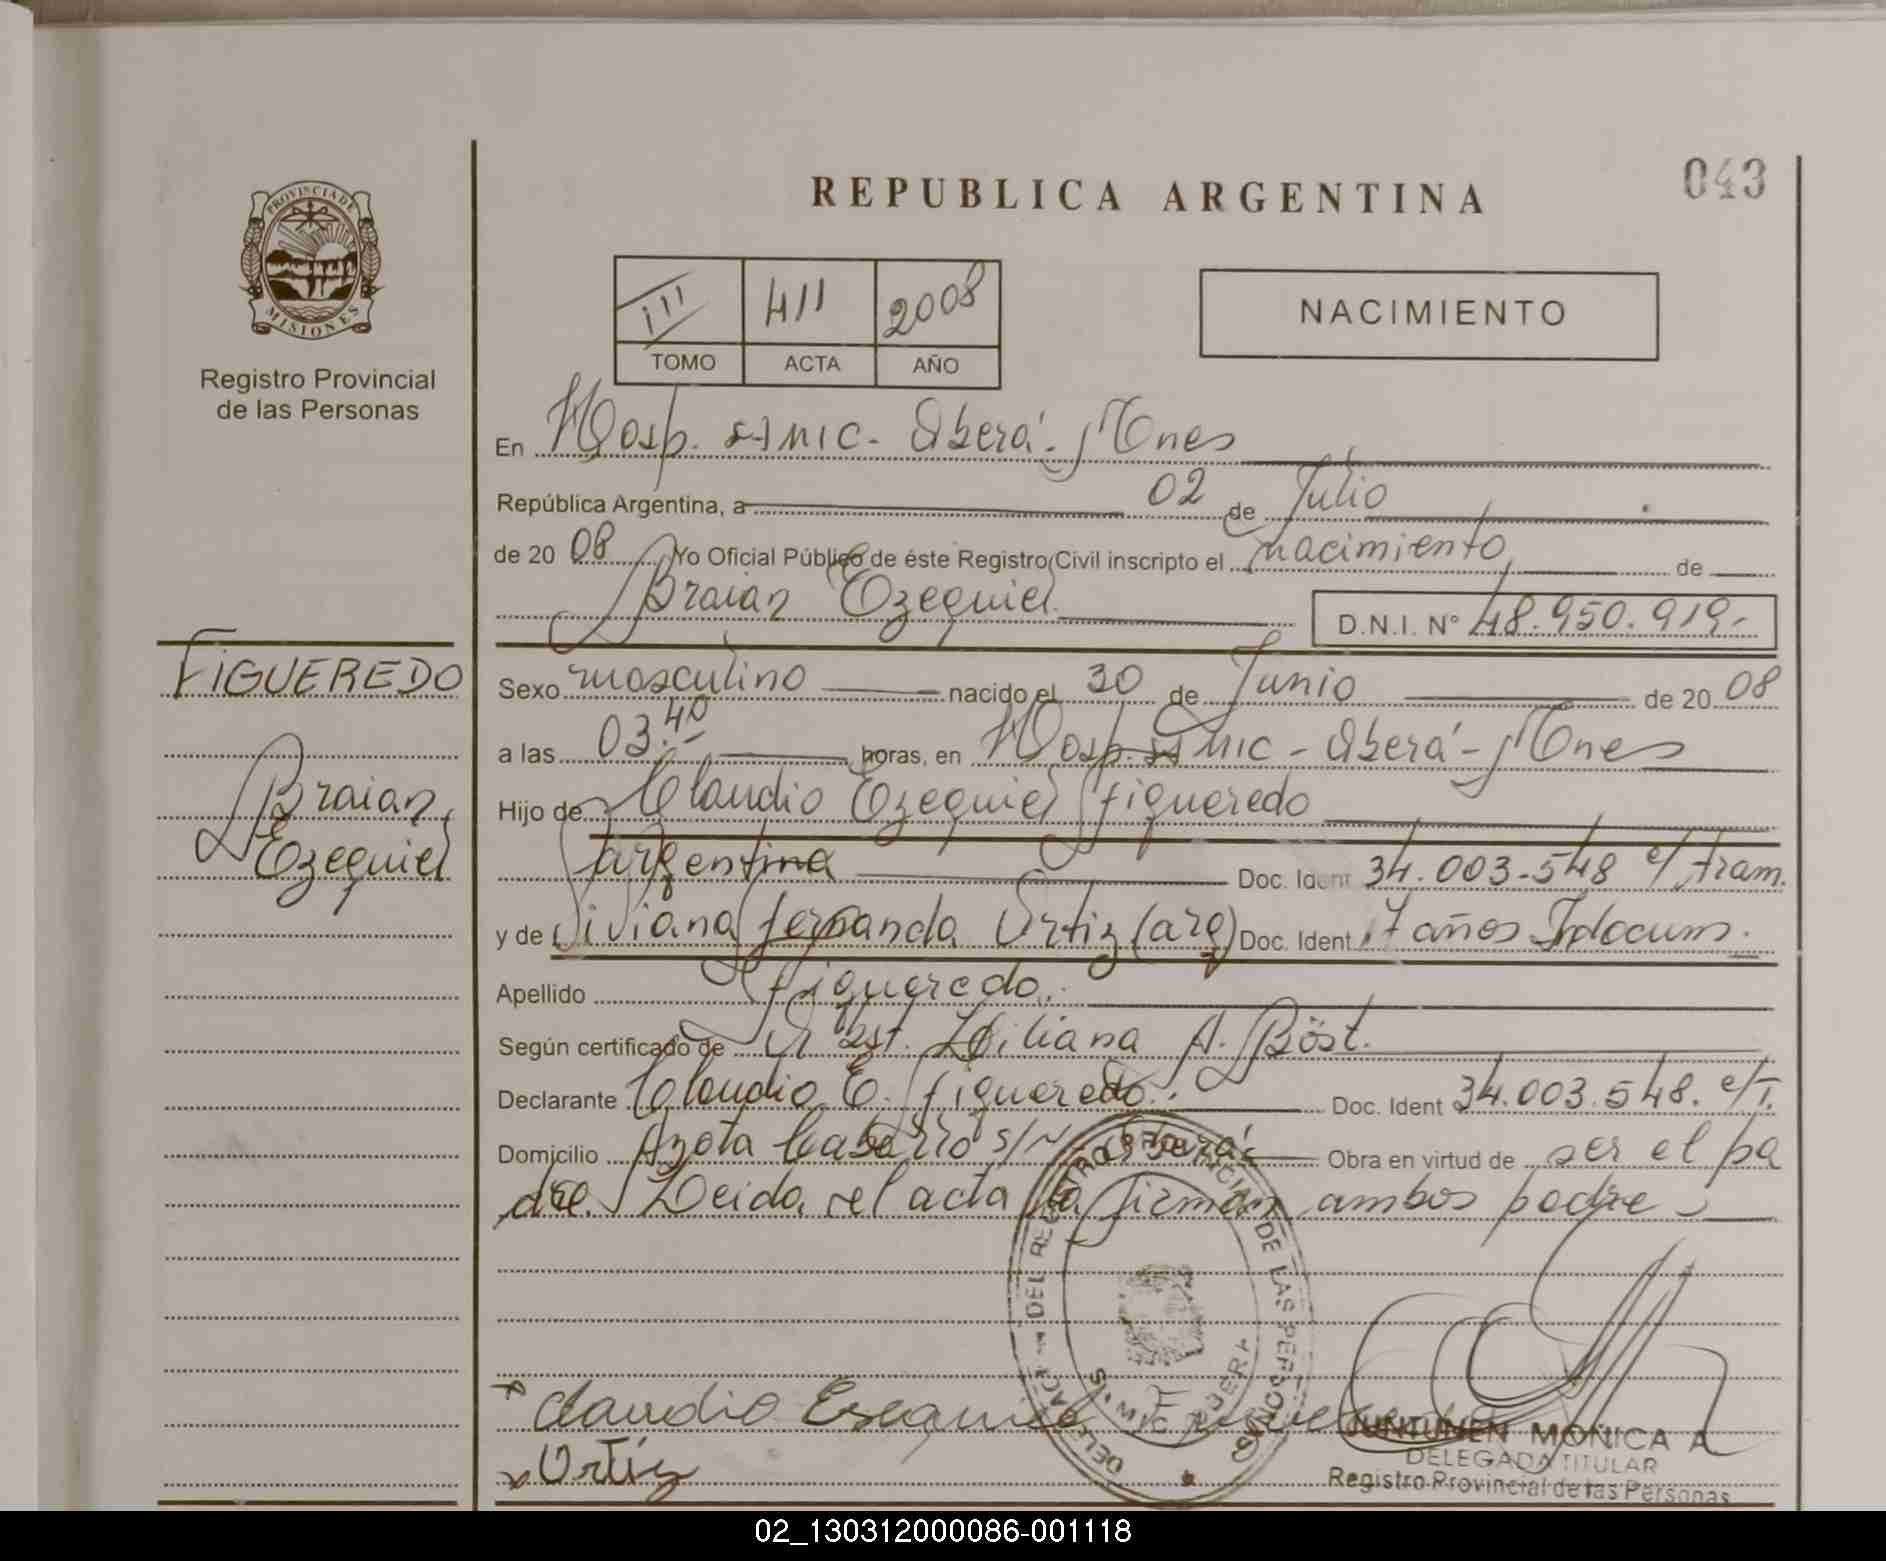 043
REPUBLICA ARGENTINA
PROVINCIA DE
MISIONES
Registro Provincial
de las Personas
III 411 2008
TOMO ACTA AÑO
NACIMIENTO
En Hosp. SAMIC - Oberá - Mnes
República Argentina, a 02 de Julio
de 20 08 Yo Oficial Público de éste Registro Civil inscripto el nacimiento de
Braian Ezequiel D.N.I. N° 48.950.919.-
FIGUEREDO
Braian
Ezequiel
Sexo masculino nacido el 30 de Junio de 20 08
a las 03:40 horas, en Hosp. SAMIC - Oberá - Mnes
Hijo de Claudio Ezequiel Figueredo
argentina Doc. Ident 34.003.548 c/ tram.
y de Viviana Fernanda Ortiz (arg) Doc. Ident 17 años Indocum.
Apellido Figueredo.
Según certificado de Obst. Liliana A. Böst.
Declarante Claudio E. Figueredo. Doc. Ident 34.003.548. c/T.
Domicilio Azota s/N Oberá Obra en virtud de ser el pa
dre. Leida el acta la firman ambos padres
DELEGACION DEL REGISTRO PROVINCIAL DE LAS PERSONAS
SAMIC OBERA
Claudio Esequiel Figueredo
Ortiz
JUNTUNEN MONICA A
DELEGADA TITULAR
Registro Provincial de las Personas
02_130312000086-001118